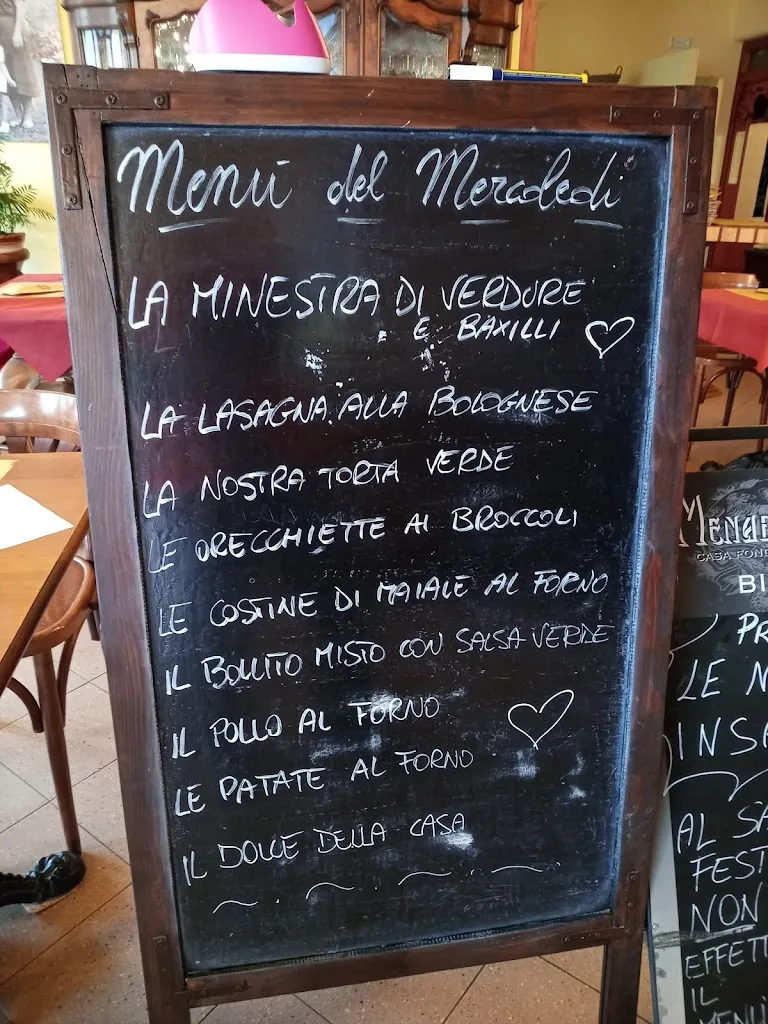 Menù del Mercoledì
LA MINESTRA DI VERDURE
E BAXILLI
LA LASAGNA ALLA BOLOGNESE
LA NOSTRA TORTA VERDE
LE ORECCHIETTE AI BROCCOLI
LE COSTINE DI MAIALE AL FORNO
IL BOLLITO MISTO CON SALSA VERDE
IL POLLO AL FORNO
LE PATATE AL FORNO
IL DOLCE DELLA CASA
CASA FON
BI
PR
LE N
INSA
AL SA
FEST
NON
EFFETT
IL
MENU